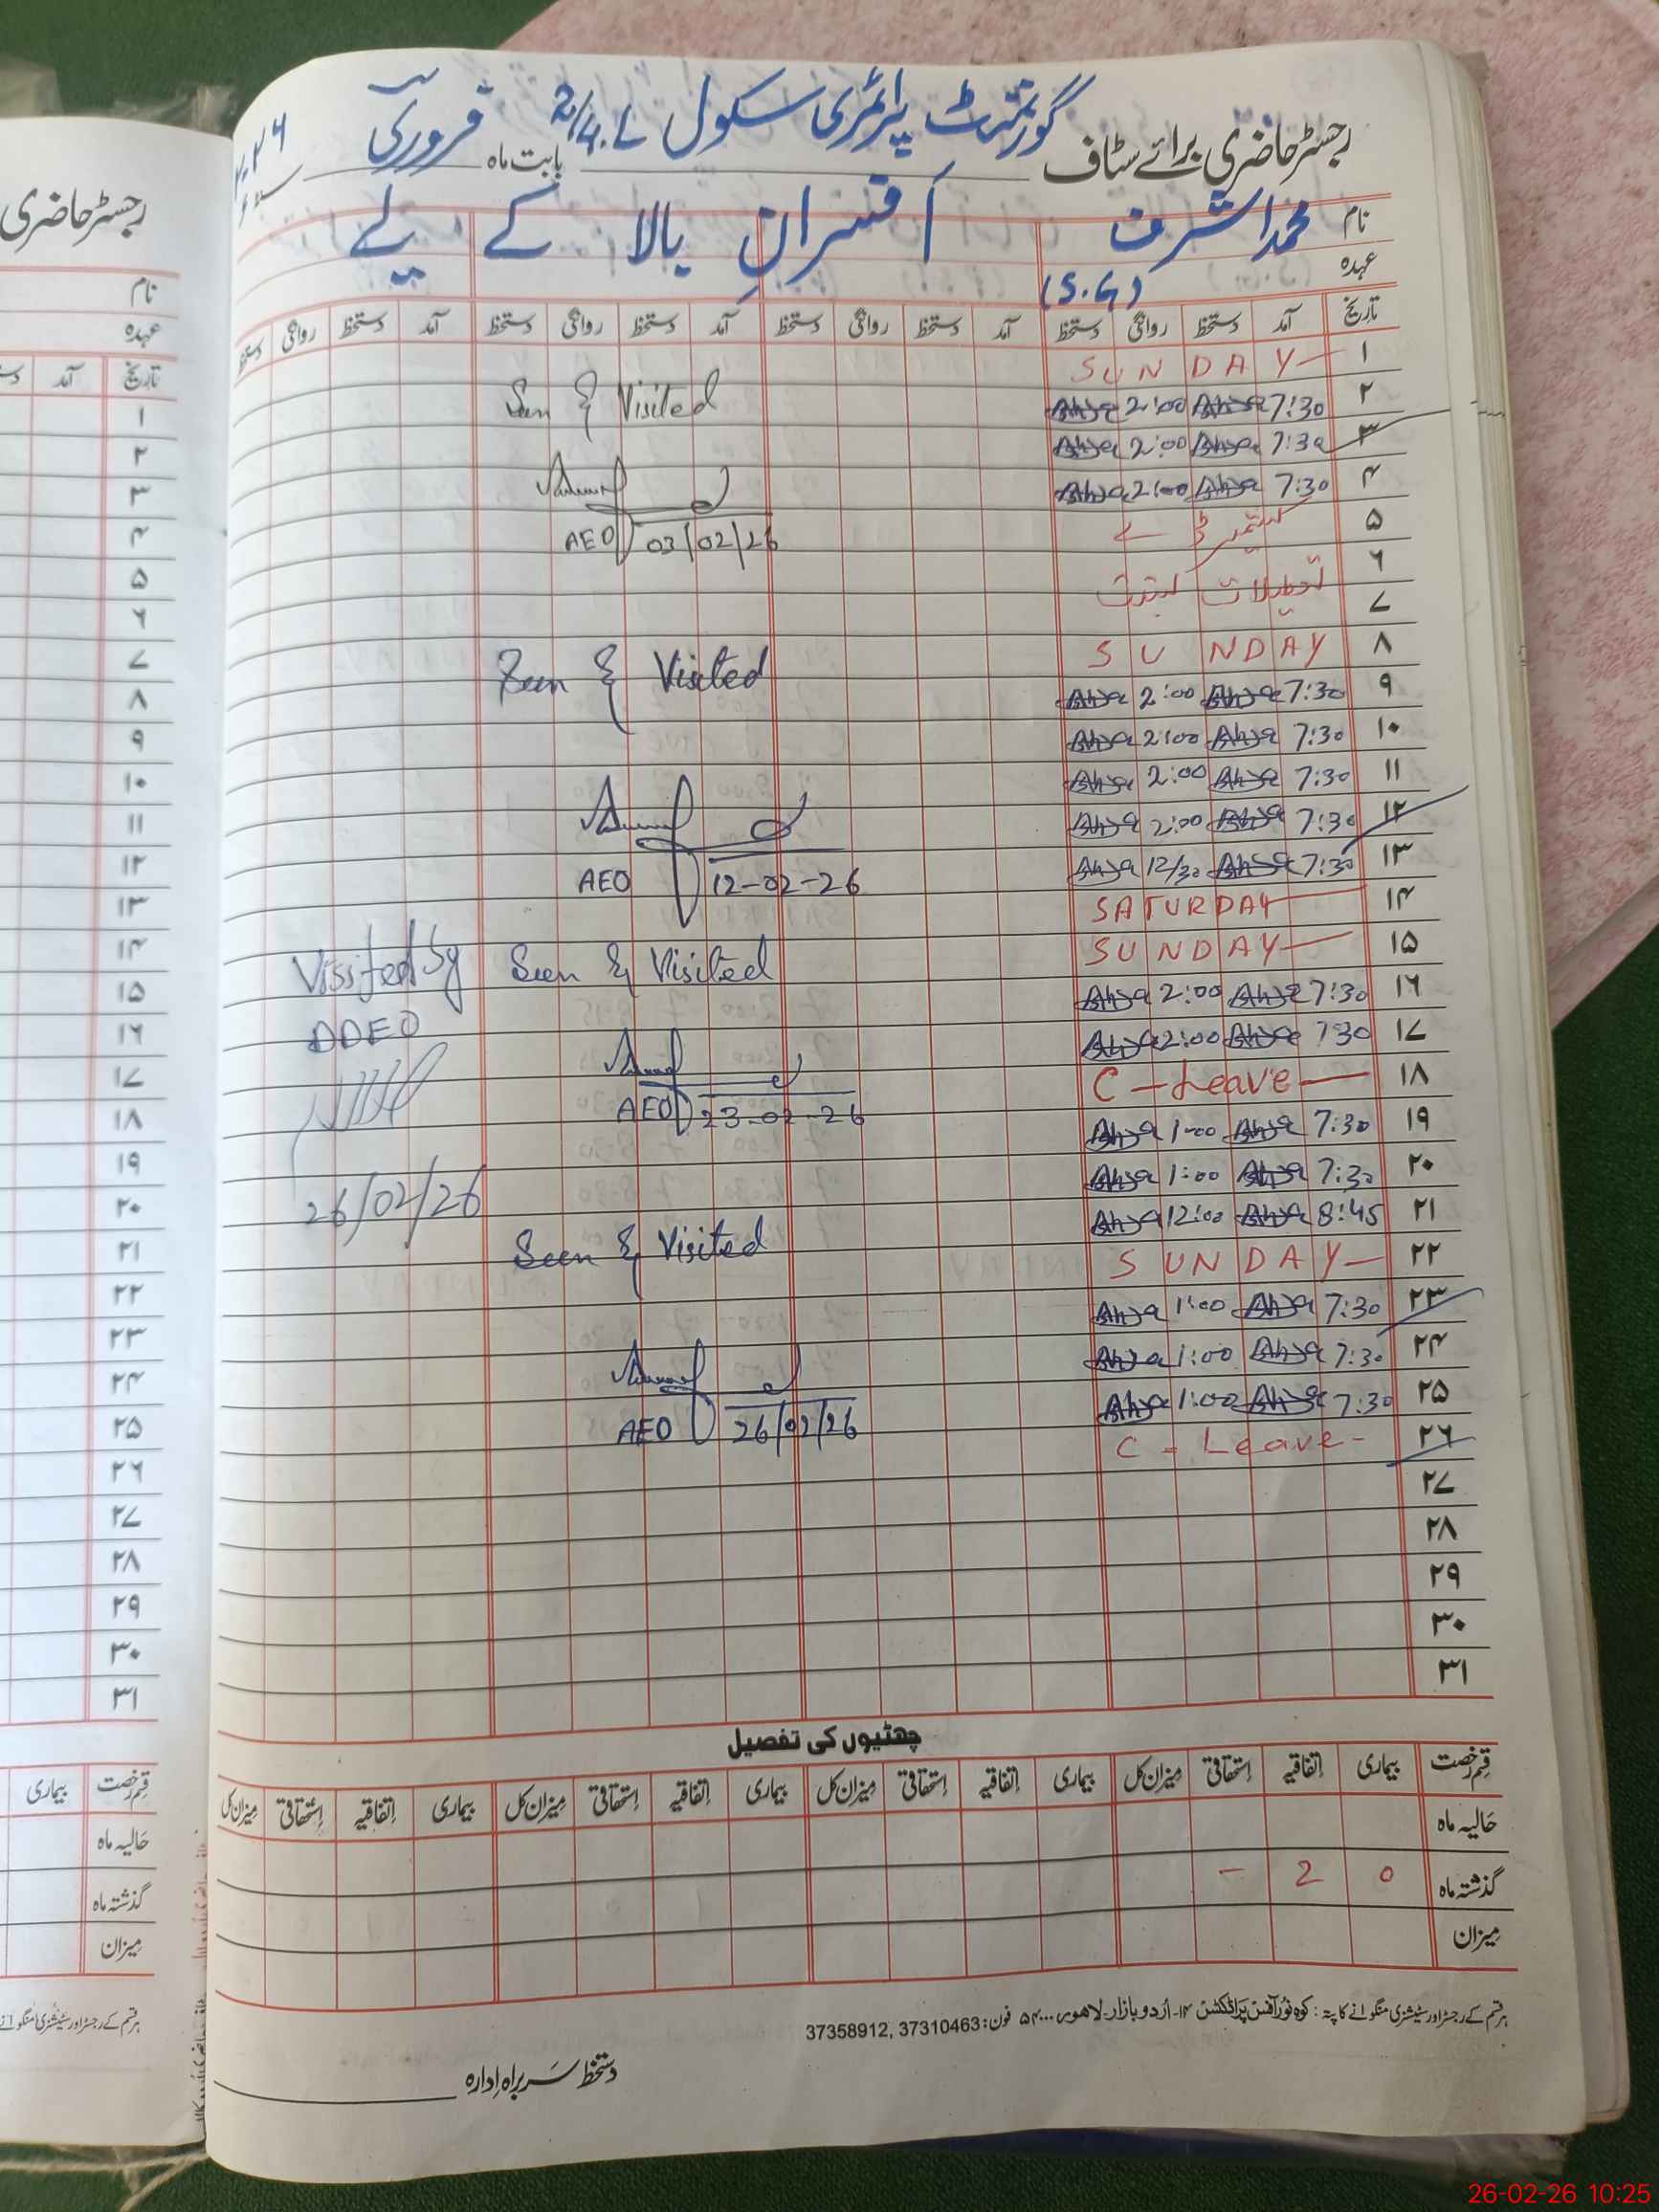 رجسٹر حاضری برائے سٹاف گورنمنٹ پرائمری سکول 2/4.L بابت ماہ فروری ۲۰۲۶
نام محمد اشرف افسرانِ بالا کے لیے
عہدہ (S.G)
تاریخ آمد دستخط روانگی دستخط آمد دستخط روانگی دستخط آمد دستخط روانگی دستخط آمد دستخط روانگی دستخط
۱ SUNDAY
۲ 7:30 2:00 Seen & Visited
۳ 7:30 2:00
۴ 7:30 2:00
AEO 03/02/26
۵
۶ تعطیلات
۷
۸ SUNDAY
Seen & Visited
۹ 7:30 2:00
۱۰ 7:30 2:00
۱۱ 7:30 2:00
۱۲ 7:30 2:00
۱۳ 7:30 12/30
AEO 12-02-26
۱۴ SATURDAY
۱۵ SUNDAY
Seen & Visited
Vissited by
DDEO
26/02/26
۱۶ 7:30 2:00
۱۷ 7:30 2:00
۱۸ C-Leave
AEO 23-02-26
۱۹ 7:30 1:00
۲۰ 7:30 1:00
۲۱ 8:45 12:00
Seen & Visited
۲۲ SUNDAY
۲۳ 7:30 1:00
۲۴ 7:30 1:00
۲۵ 7:30 1:00
AEO 26/02/26
۲۶ C-Leave-
۲۷
۲۸
۲۹
۳۰
۳۱
چھٹیوں کی تفصیل
قسم رخصت بیماری اتفاقیہ استحقاقی میزان کل بیماری اتفاقیہ استحقاقی میزان کل بیماری اتفاقیہ استحقاقی میزان کل بیماری اتفاقیہ استحقاقی میزان کل
حالیہ ماہ
گذشتہ ماہ 0 2 -
میزان
ہر قسم کے رجسٹر اور سٹیشنری منگوانے کا پتہ: کوہ نور آفسٹ پراڈکٹس ۱۴- اردو بازار- لاہور ۵۴۰۰۰ فون: 37310463, 37358912
دستخط سربراہ ادارہ
رجسٹر حاضری
نام
عہدہ
تاریخ آمد
۱
۲
۳
۴
۵
۶
۷
۸
۹
۱۰
۱۱
۱۲
۱۳
۱۴
۱۵
۱۶
۱۷
۱۸
۱۹
۲۰
۲۱
۲۲
۲۳
۲۴
۲۵
۲۶
۲۷
۲۸
۲۹
۳۰
۳۱
قسم رخصت بیماری
حالیہ ماہ
گذشتہ ماہ
میزان
ہر قسم کے رجسٹر اور سٹیشنری منگوانے
26-02-26 10:25